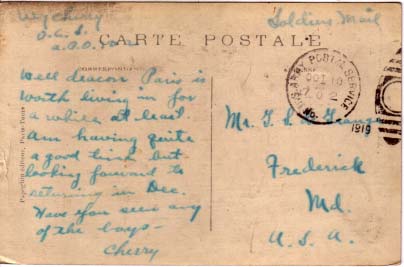 Wy Cherry
O.C.S.
A.P.O. 702
Soldiers Mail
CARTE POSTALE
CORRESPONDANCE
Well deacon Paris is
worth living in for
a while at least.
Am having quite
a good time but
looking forward to
returning in Dec.
Have you seen any
of the boys -
Cherry
U.S. ARMY POSTAL SERVICE
OCT 10
702
1919
Mr. T. S.
Frederick
Md.
U.S.A.